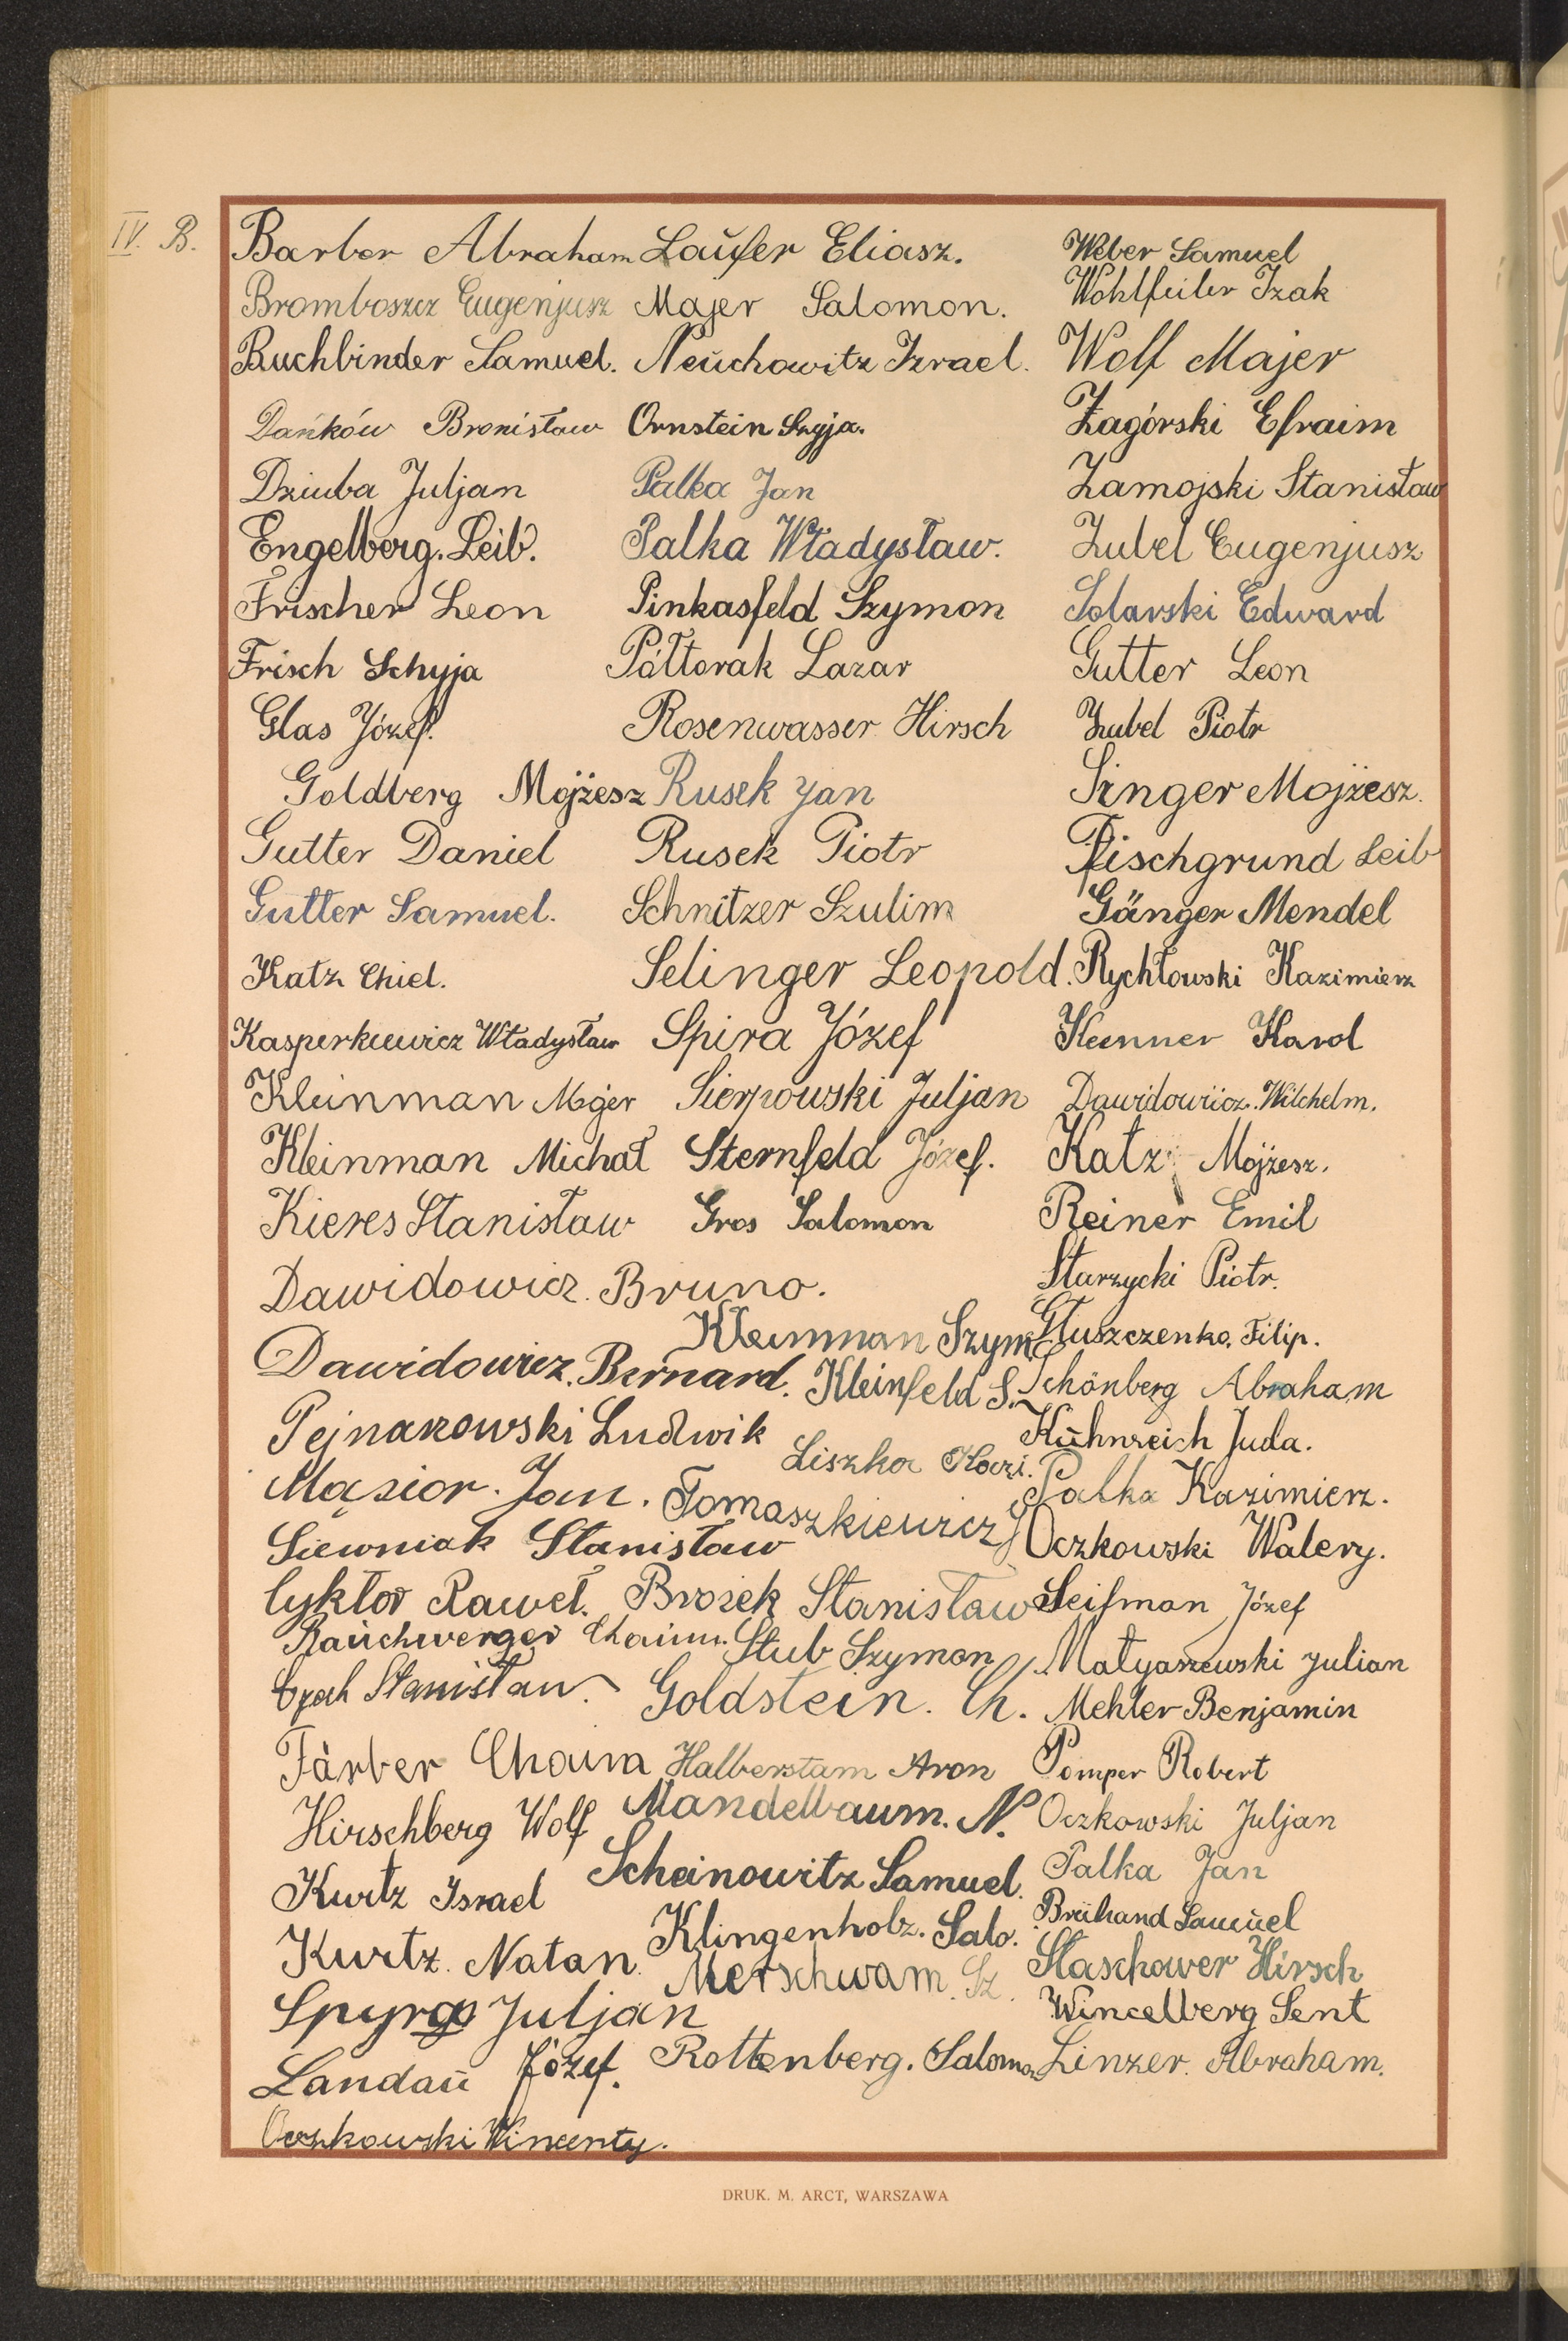 IV. B.
Barber Abraham
Bromboszcz Eugenjusz
Buchbinder Samuel.
Dańków Bronisław
Dziuba Juljan
Engelberg. Leib.
Frischer Leon
Frisch Schyja
Glas Józef.
Goldberg Mojżesz
Gutter Daniel
Gutter Samuel.
Katz Chiel.
Kasperkiewicz Władysław
Kleinman Majer
Kleinman Michał
Kieres Stanisław
Dawidowicz. Bruno.
Dawidowicz. Bernard.
Pejnakowski Ludwik
Mąsior. Jan.
Siewniak Stanisław
Cyktor Paweł.
Raŭchwerger Chaim.
Stanisław.
Färber Chaim
Hirschberg Wolf
Kurtz Israel
Kurtz. Natan.
Spyra Juljan
Landaŭ Józef.
Oczkowski Wincenty.
Laŭfer Eliasz.
Majer Salomon.
Neŭchowitz Izrael.
Ornstein Szyja.
Palka Jan
Palka Władysław.
Pinkasfeld Szymon
Półtorak Lazar
Rosenwasser Hirsch
Rusek Jan
Rusek Piotr
Schnitzer Szulim
Selinger Leopold.
Spira Józef
Sierpowski Juljan
Sternfeld Józef.
Gros Salomon
Kleinman Szym.
Kleinfeld S.
Liszka Kazi.
Tomaszkiewicz J
Brożek Stanisław
Stub Szymon
Goldstein. Ch.
Halberstam Aron
Mandelbaum. N.
Scheinowitz Samuel.
Klingenholz. Salo.
Merschwam. Sz.
Rottenberg. Salomon
Weber Samuel
Wohlfeiler Izak
Wolf Majer
Zagórski Efraim
Zamojski Stanisław
Zubel Eugenjusz
Solarski Edward
Gutter Leon
Zubel Piotr
Singer Mojżesz.
Fischgrund Leib
Gänger Mendel
Rychłowski Kazimierz
Kenner Karol
Dawidowicz. Wilchelm.
Katz Mojżesz.
Reiner Emil
Starzycki Piotr.
Głuszczenko. Filip.
Schönberg Abraham
Kühnreich Juda.
Palka Kazimierz.
Oczkowski Walery.
Leifman Józef
Matyaszewski Julian
Mehler Benjamin
Pomper Robert
Oczkowski Juljan
Palka Jan
Brühand Samŭel
Staschower Hirsch
Wincelberg Sent
Linzer. Abraham.
DRUK. M. ARCT, WARSZAWA